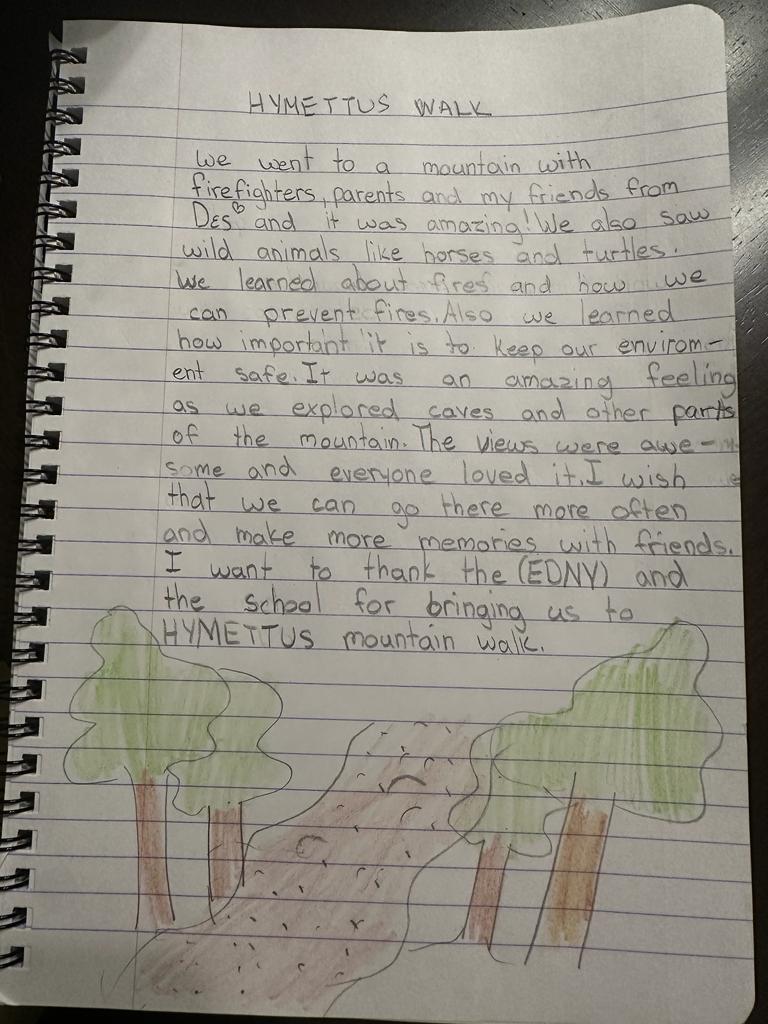 HYMETTUS WALK
We went to a mountain with
firefighters, parents and my friends from
DES♡ and it was amazing! We also saw
wild animals like horses and turtles.
We learned about fires and how we
can prevent fires. Also we learned
how important it is to keep our envirom-
ent safe. It was an amazing feeling
as we explored caves and other parts
of the mountain. The views were awe-
some and everyone loved it. I wish
that we can go there more often
and make more memories with friends.
I want to thank the (EDNY) and
the school for bringing us to
HYMETTUS mountain walk.